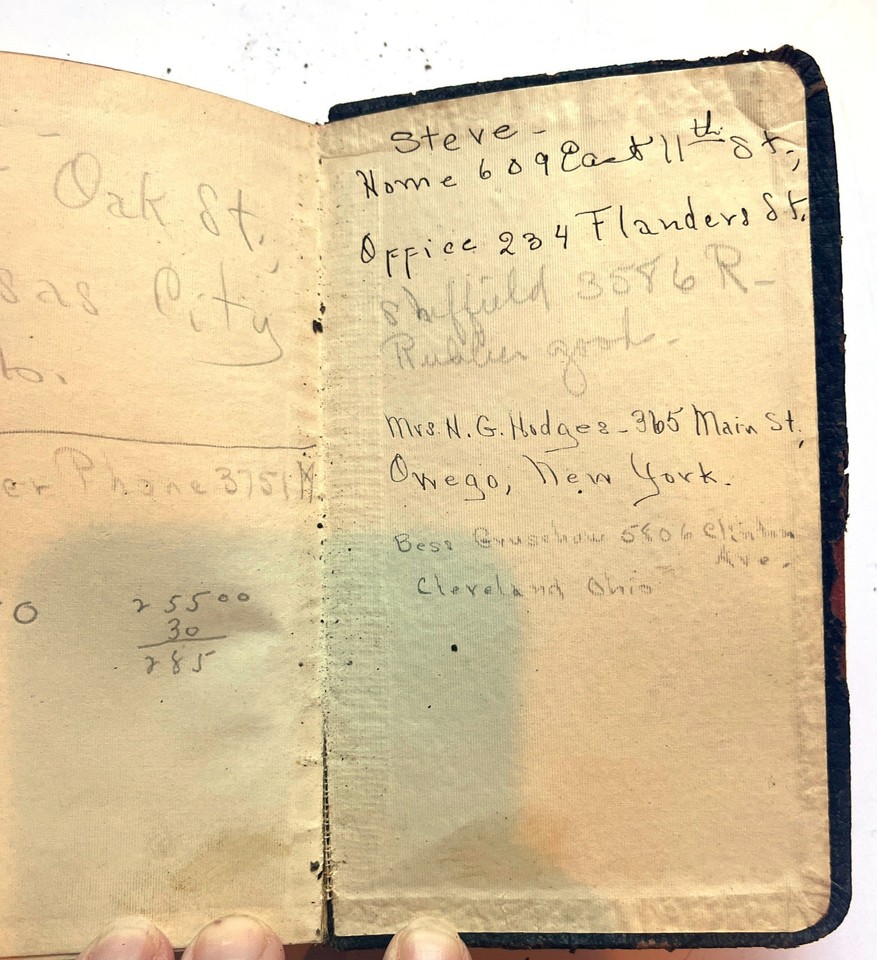 Oak St.
sas City
o.
er Phone 3751
0
255 00
30
285
Steve -
Home 609 East 11th St.,
Office 234 Flanders St.
Sheffield 3586 R-
good.
Mrs. N. G. Hodges - 365 Main St.,
Owego, New York.
Bess 5806 Clinton
Ave.
Cleveland Ohio